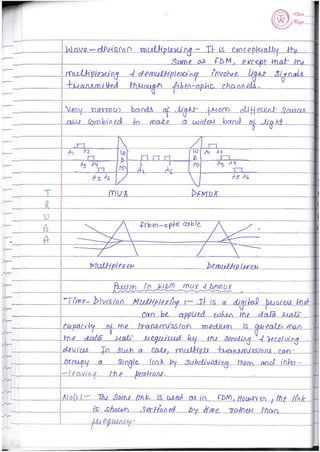 Wave-division multiplexing - It is conceptually the
same as FDM, except that the
multiplexing & demultiplexing involve light signals
transmitted through fiber-optic channels.
Very narrow bands of light from different sources
are combined to make a wider band of light.
λ1 λ2
λ3 λ4
λ5 λ6
W
D
M
λ1 λ2
W
D
M
λ1 λ2
λ3 λ4
λ5 λ6
MUX
DEMUX
T
R
U
B
A
fiber-optic cable
Multiplexer
Demultiplexer
Prism in WDM mux & Demux
Time-Division Multiplexing :- It is a digital process that
can be applied when the data rate
capacity of the transmission medium is greater than
the data rate required by the sending & receiving
devices. In such a case, multiple transmissions can
occupy a single link by subdividing them and inter-
-leaving the portions.
Note:- The same link is used as in FDM, However, the link
is shown sectioned by time rather than
frequency.